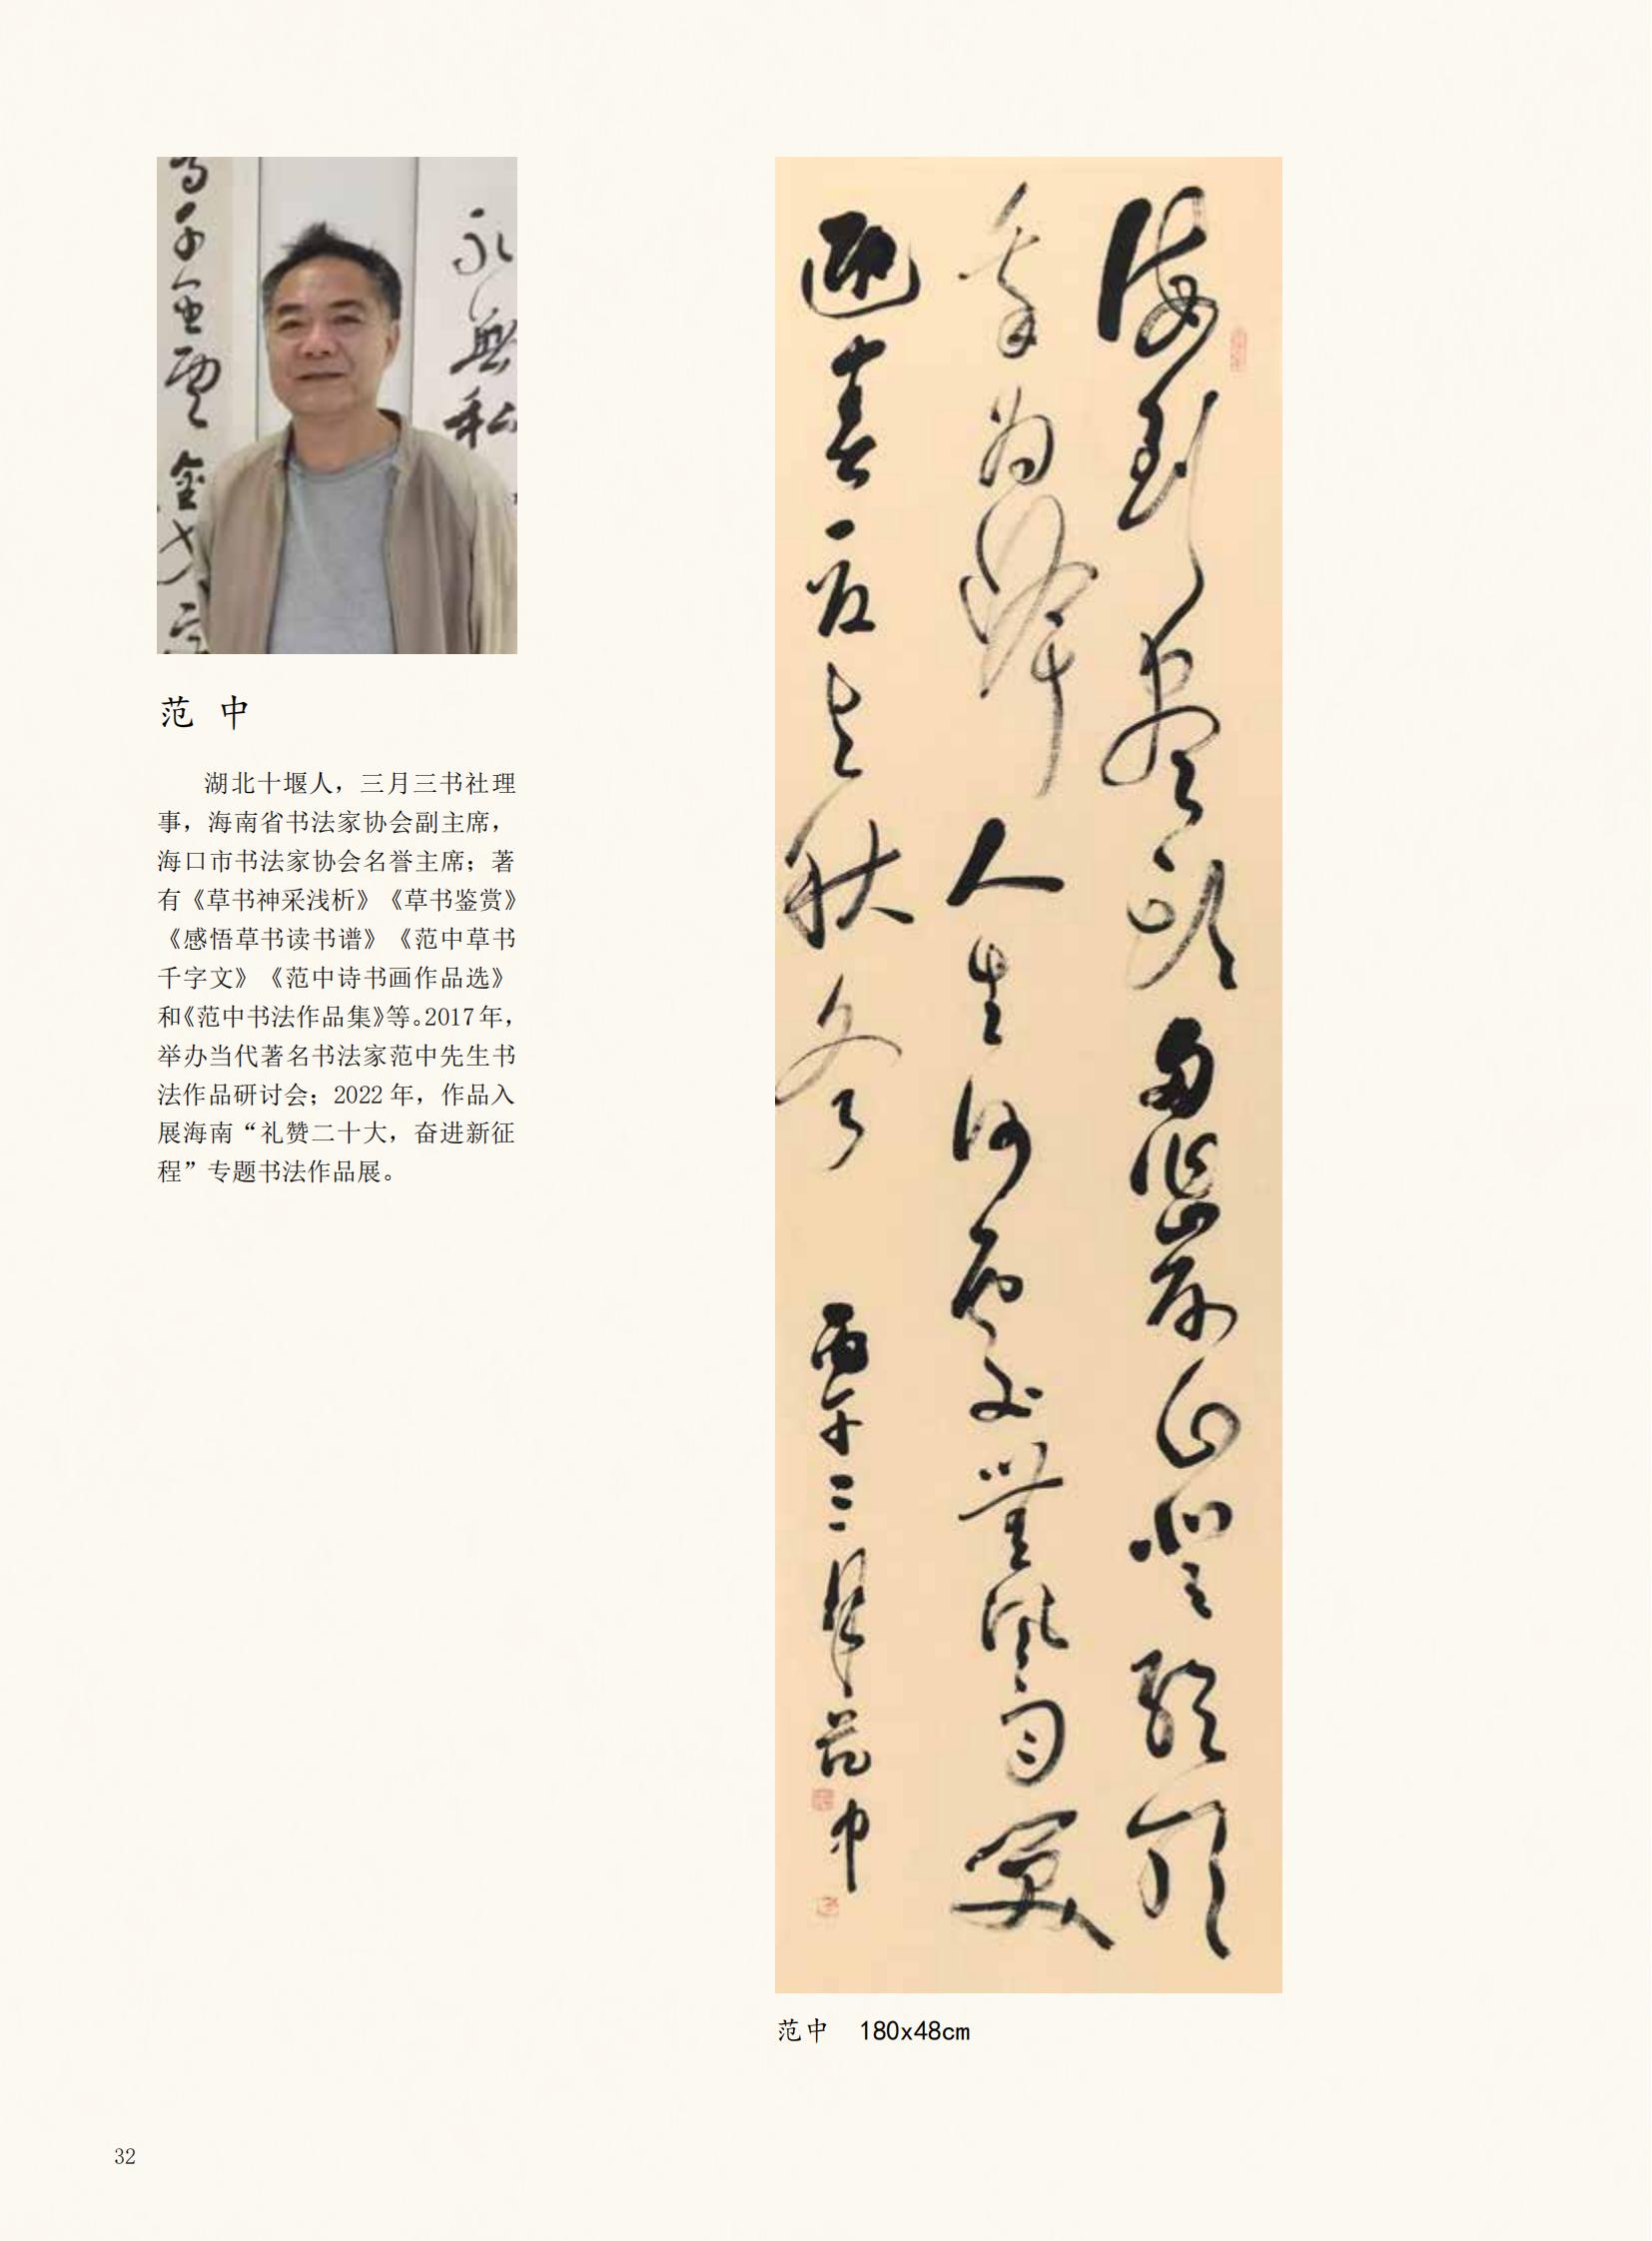 永無私
范 中
湖北十堰人，三月三书社理
事，海南省书法家协会副主席，
海口市书法家协会名誉主席；著
有《草书神采浅析》《草书鉴赏》
《感悟草书读书谱》《范中草书
千字文》《范中诗书画作品选》
和《范中书法作品集》等。2017年，
举办当代著名书法家范中先生书
法作品研讨会；2022年，作品入
展海南“礼赞二十大，奋进新征
程”专题书法作品展。
海到盡頭作岸山登絕頂
為峰人生何處無風雨笑
迎春夏与秋冬 丙午三月范中
范中 180x48cm
32